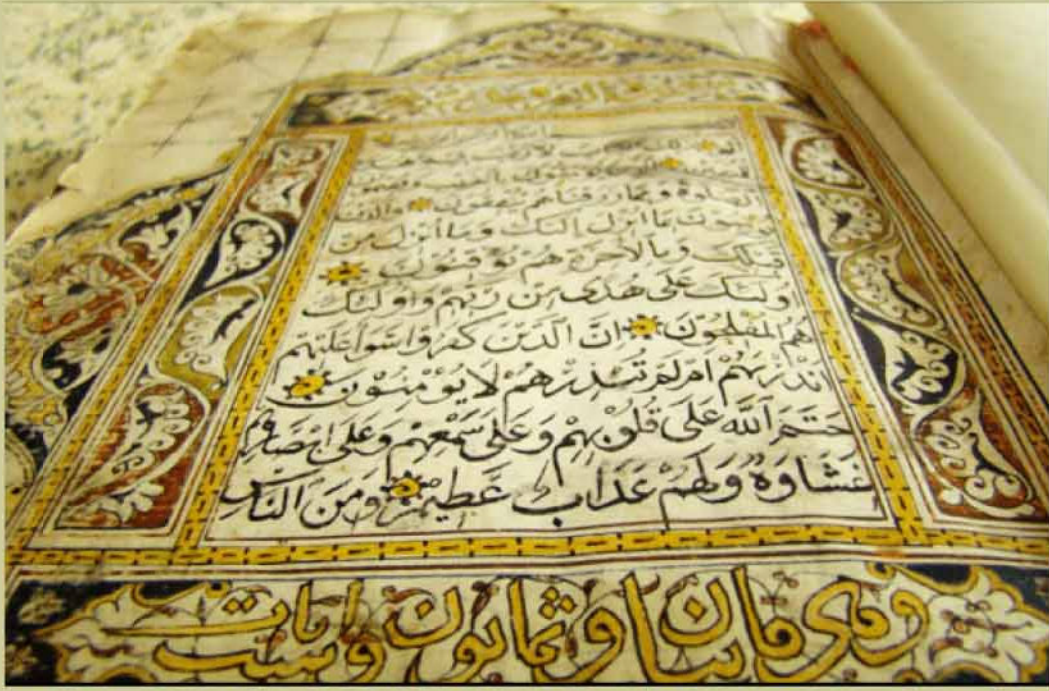 لا ريب فيه
يؤمنون بالغيب ويقيمون
الصلوة ومما رزقناهم ينفقون والذين
يؤمنون بما أنزل إليك وما أنزل من
قبلك وبالآخرة هم يوقنون
أولئك على هدى من ربهم وأولئك
هم المفلحون ان الذين كفروا سواء عليهم
ءانذرتهم أم لم تنذرهم لا يؤمنون
ختم الله على قلوبهم وعلى سمعهم وعلى ابصارهم
غشاوة ولهم عذاب عظيم ومن الناس
وهي مايتان وثمانون وست ايات